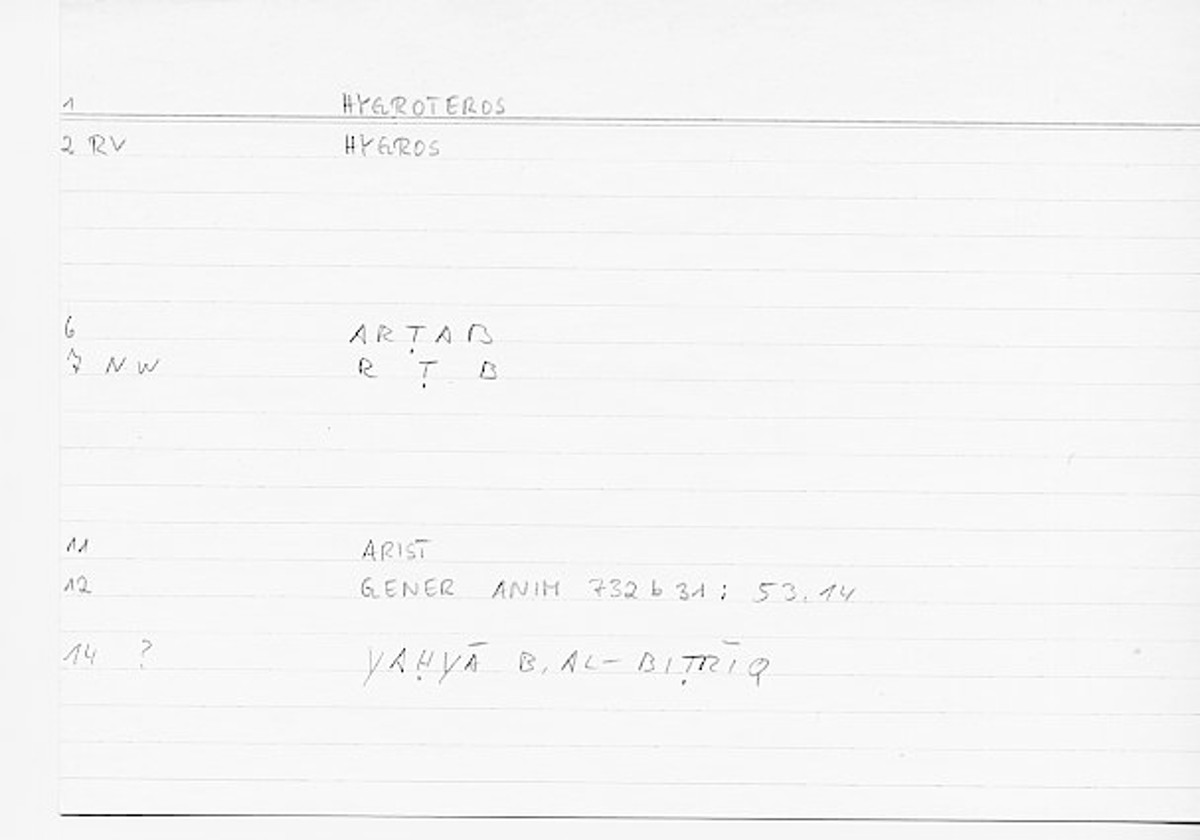 1 HYGROTEROS
2 RV HYGROS
6 ARṬAB
7 NW R Ṭ B
11 ARIST
12 GENER ANIM 732 b 31 : 53.14
14 ? YAḤYĀ B. AL-BIṬRĪQ